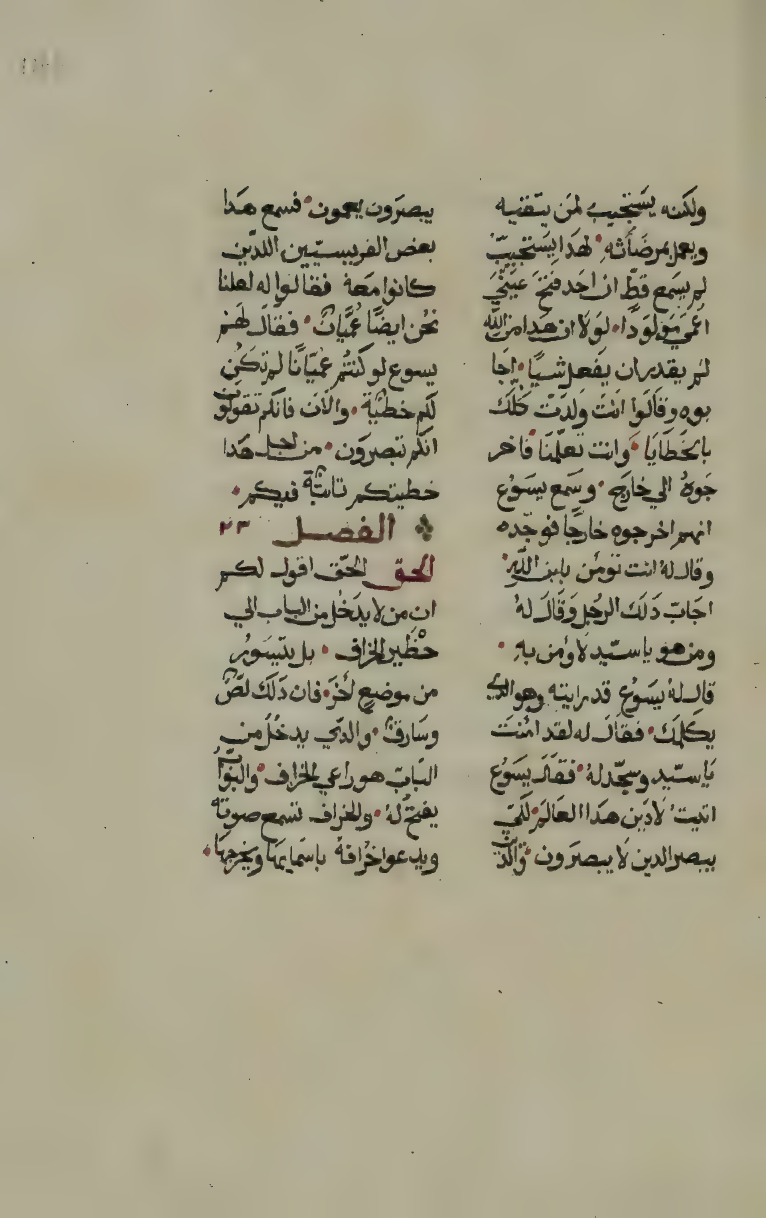 ولكنه يستجيب لمن يتقنيه
ويعمل بمرضاته لهدا يستجيب
لم يسمع قط ان احد فتح عيني
اعمى مولودا لولا ان هدا من الله
لم يقدر ان يفعل شيا اجا
بوه وقالوا انت ولدت كلك
بالخطايا وانت تعلمنا فاخر
جوه الي خارج وسمع يسوع
انهم اخرجوه خارجا فوجده
وقال له انت تومن بابن الله
اجاب دلك الرجل وقال له
ومن هو ياسيد لاومن به
قال له يسوع قد رايته وهو الدي
يكلمك فقال له لقد امنت
ياسيد وسجد له فقال يسوع
اتيت لادين هدا العالم لكي
يبصر الدين لا يبصرون والدين
يبصرون يعمون فسمع هدا
بعض الفريسيين اللدين
كانوا معه فقالوا له لعلنا
نحن ايضا عميان فقال لهم
يسوع لو كنتم عميانا لم تكن
لكم خطية والان فانكم تقولون
انكم تبصرون من اجل هدا
خطيتكم تابتة فيكم
الفصل ٢٣
الحق الحق اقول لكم
ان من لا يدخل من الباب الي
حظير الخراف بل يتسور
من موضع اخر فان دلك لص
وسارق والدي يدخل من
الباب هو راعي الخراف والبواب
يفتح له والخراف تسمع صوته
ويدعوا خرافه باسمايها ويخرجها